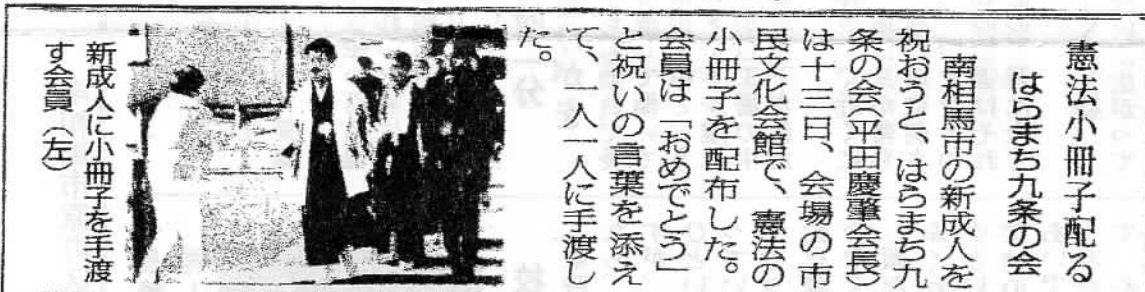 憲法小冊子配る
はらまち九条の会
南相馬市の新成人を
祝おうと、はらまち九
条の会(平田慶肇会長)
は十三日、会場の市
民文化会館で、憲法の
小冊子を配布した。
会員は「おめでとう」
と祝いの言葉を添え
て、一人一人に手渡し
た。
新成人に小冊子を手渡
す会員(左)